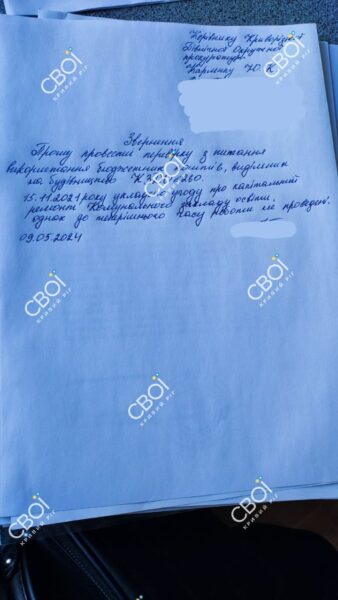 Керівнику Криворізької
Північної Окружної
прокуратури
Карленку Ю. К
Звернення
Прошу провести перевірку з питання
використання бюджетних коштів, виділених
на будівництво КЗШ №
15.11.2021 року укладено угоду про капітальний
ремонт Комунального закладу освіти,
однак до теперішнього часу роботи не проведені.
09.05.2024
СВОЇ
КРИВИЙ РІГ
СВОЇ
КРИВИЙ РІГ
СВОЇ
КРИВИЙ РІГ
СВОЇ
КРИВИЙ РІГ
СВОЇ
КРИВИЙ РІГ
СВОЇ
КРИВИЙ РІГ
СВОЇ
КРИВИЙ РІГ
СВОЇ
КРИВИЙ РІГ